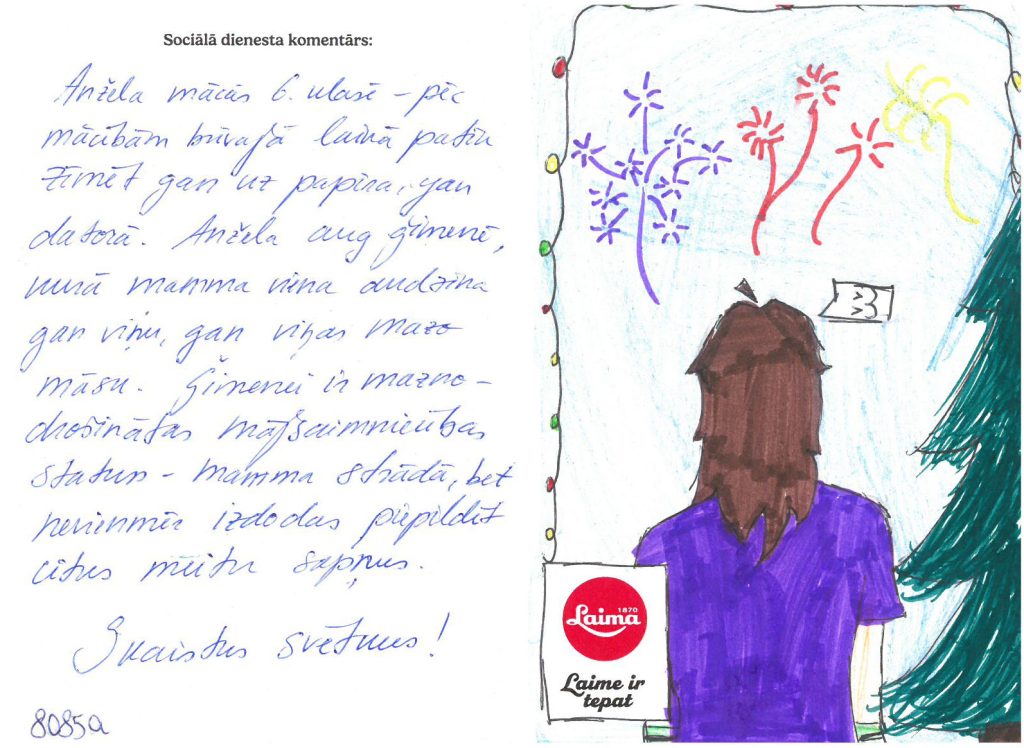 Sociālā dienesta komentārs:
Anžela mācās 6. klasē – pēc
mācībām brīvajā laikā patīk
zīmēt gan uz papīra, gan
datorā. Anžela aug ģimenē,
kurā mamma viena audzina
gan viņu, gan viņas mazo
māsu. Ģimenei ir mazno-
drošinātas mājsaimniecības
statuss – mamma strādā, bet
nevienmēr izdodas piepildīt
citus meitu sapņus.
Skaistus svētkus!
8085a
Laima
1870
Laime ir
tepat